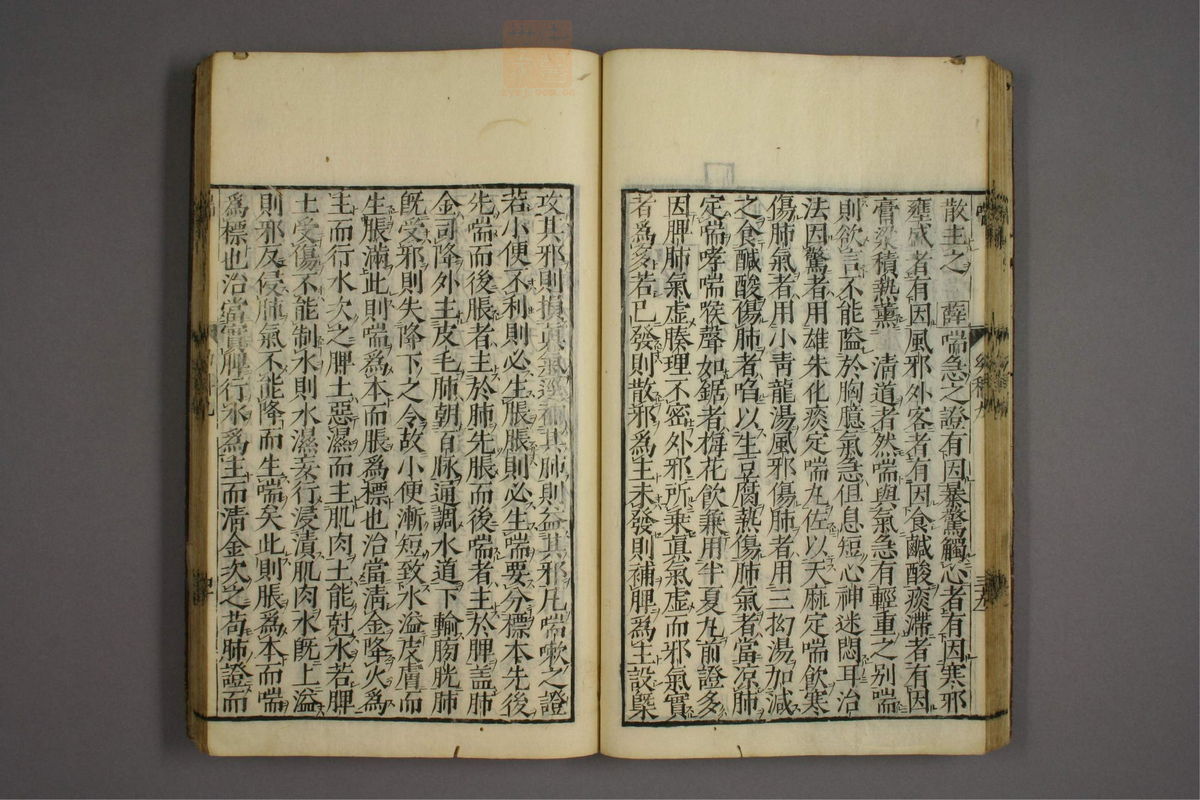 散主之 薛 喘急之證有因暴驚觸心者有因寒邪
壅盛者有因風邪外客者有因食鹹酸痰滯者有因
膏粱積熱薰 清道者然喘與氣急有輕重之别喘
則欲言不能隘於胸臆氣急但息短心神迷悶耳治
法因驚者用雄朱化痰定喘丸佐以天麻定喘飲寒
傷肺氣者用小靑龍湯風邪傷肺者用三抝湯加減
之食鹹酸傷肺者啗以生豆腐熱傷肺氣者當凉肺
定喘哮喘喉聲如鋸者梅花飲兼用半夏丸前證多
因脾肺氣虛腠理不密外邪所乗眞氣虛而邪氣實
者爲多若已發則散邪爲主未發則補脾爲主設槩
攻其邪則損眞氣逕補其肺則益其邪凡喘嗽之證
若小便不利則必生脹脹則必生喘要分標本先後
先喘而後脹者主於肺先脹而後喘者主於脾盖肺
金司降外主皮毛肺朝百脉通調水道下輸膀胱肺
旣受邪則失降下之令故小便漸短致水溢皮膚而
生脹滿此則喘爲本而脹爲標也治當清金降火爲
主而行水次之脾土惡濕而主肌肉土能尅水若脾
土受傷不能制水則水濕妄行浸漬肌肉水旣上溢
則邪反侵肺氣不能降而生喘矣此則脹爲本而喘
爲標也治當實脾行水爲主而清金次之苟肺證而